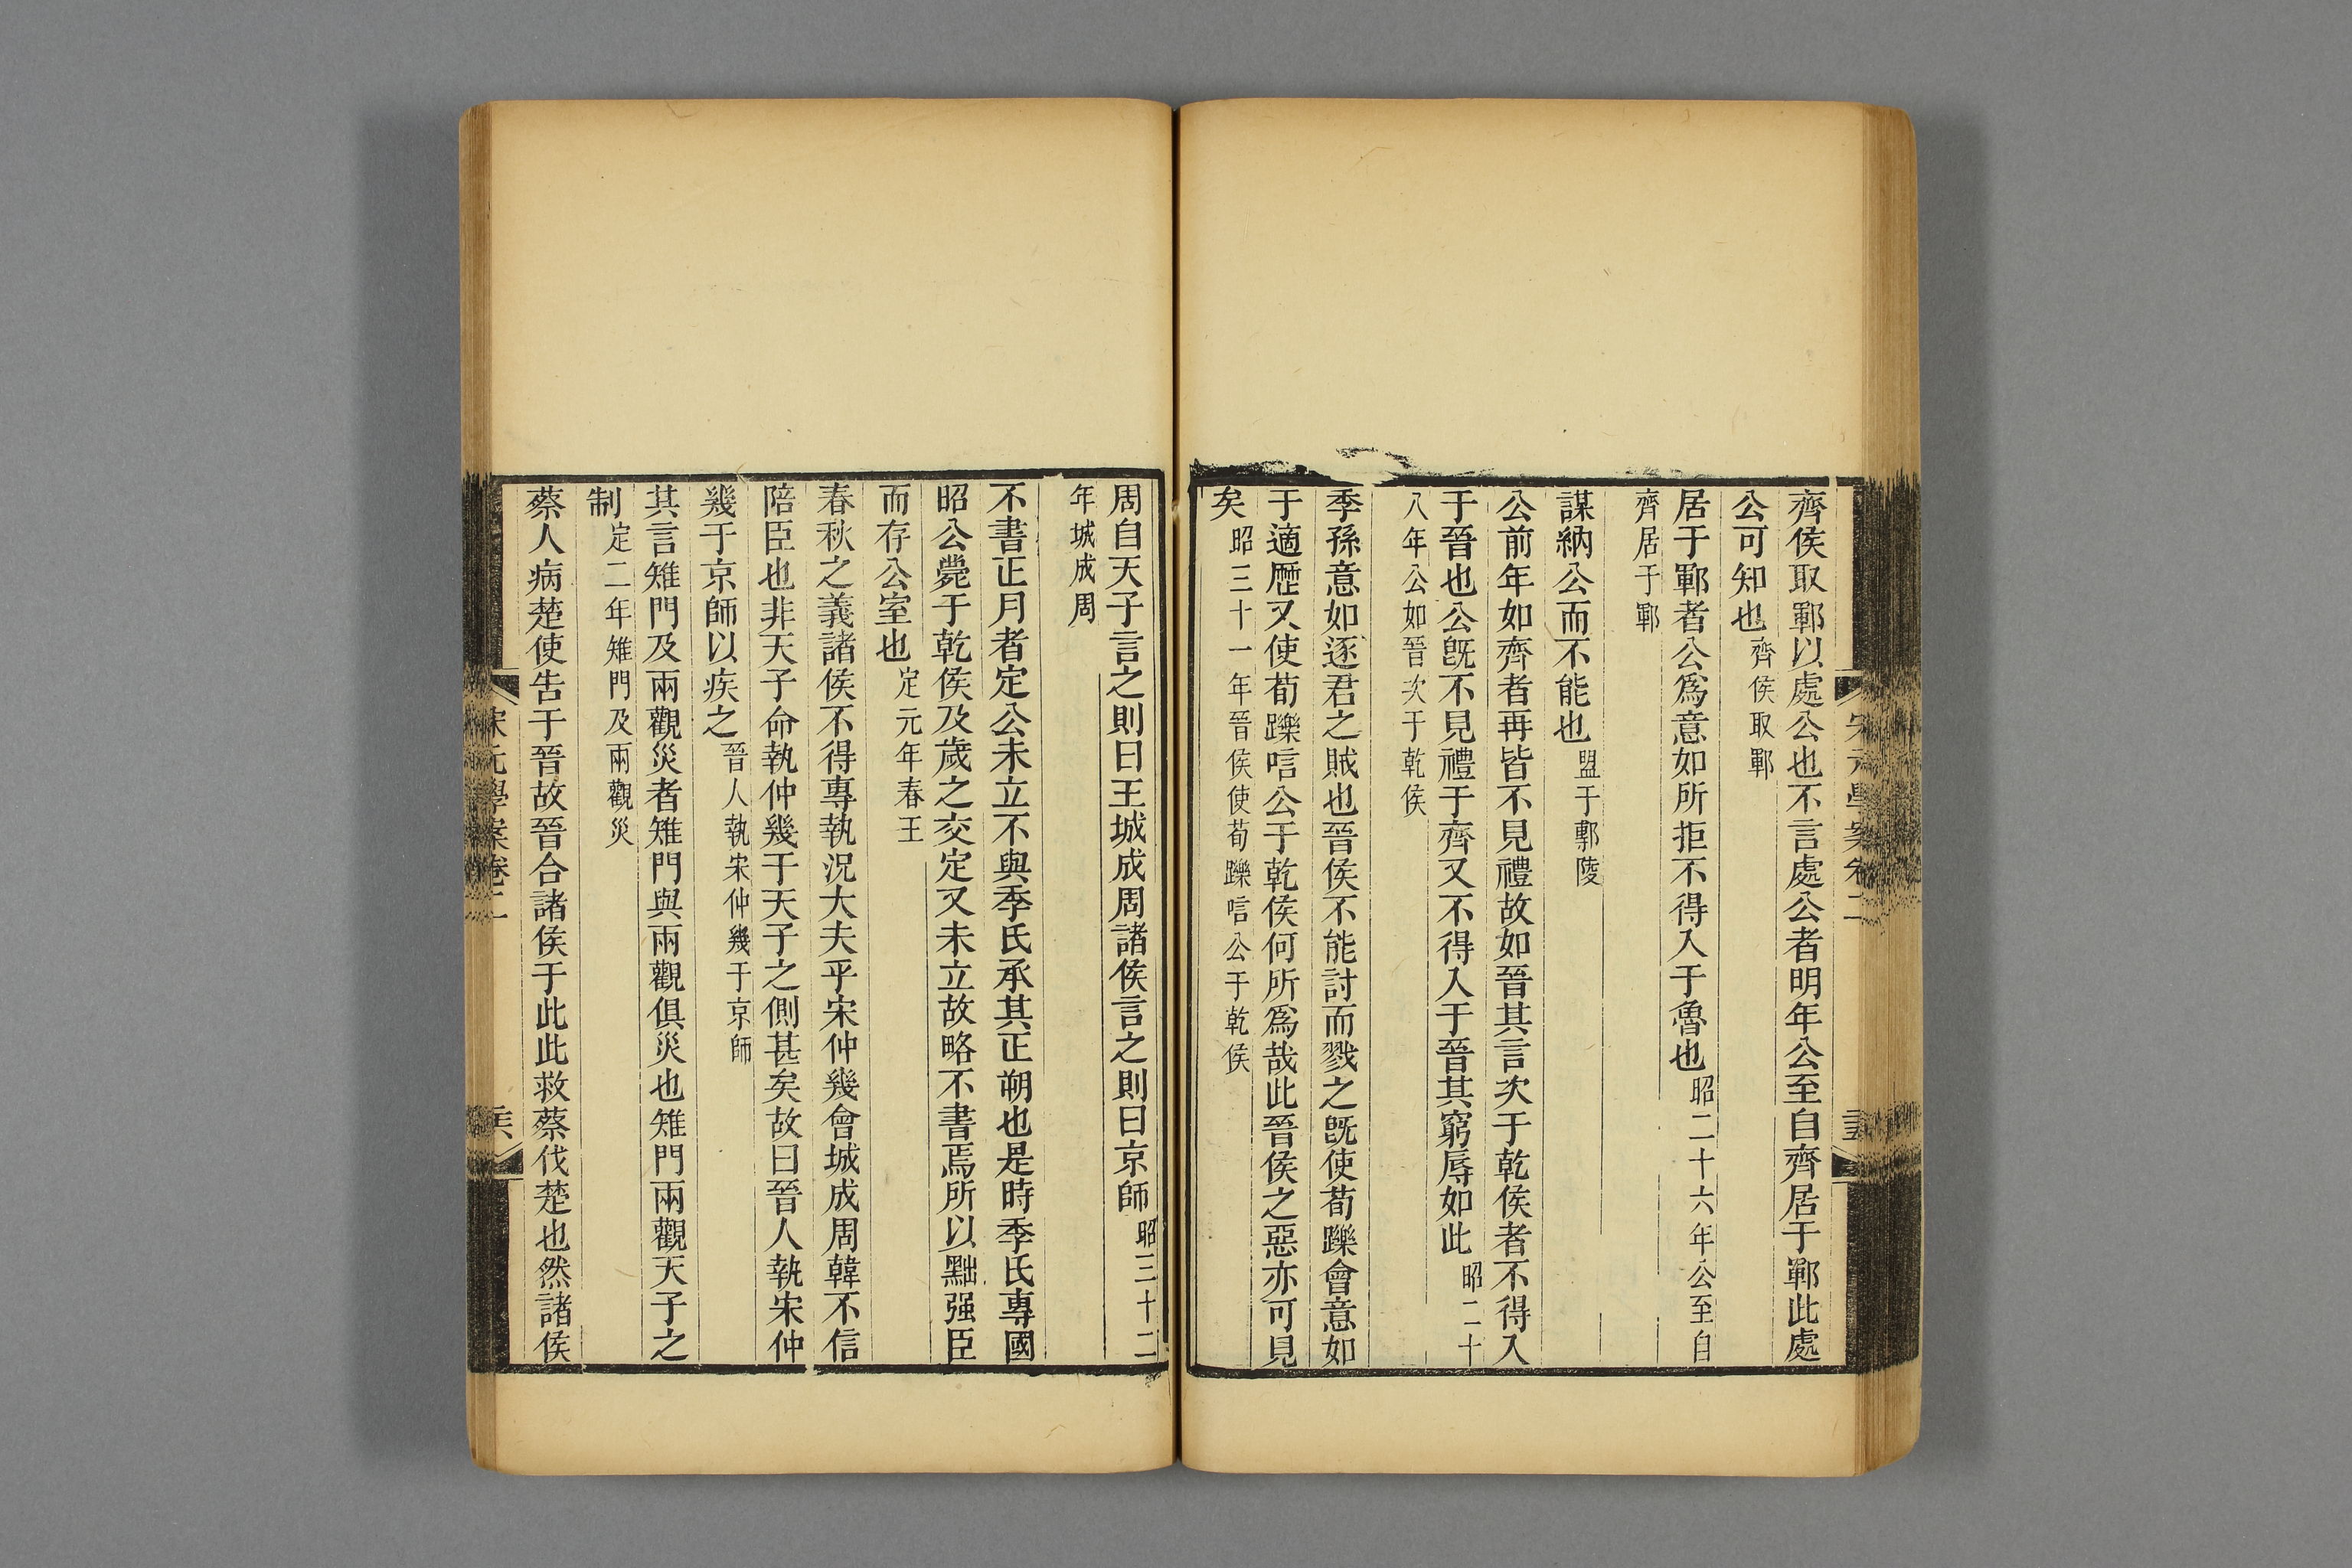 齊侯取鄆以處公也不言處公者明年公至自齊居于鄆此處
公可知也齊侯取鄆
居于鄆者公爲意如所拒不得入于魯也昭二十六年公至自
齊居于鄆
謀納公而不能也盟于鄟陵
公前年如齊者再皆不見禮故如晉其言次于乾侯者不得入
于晉也公旣不見禮于齊又不得入于晉其窮辱如此昭二十
八年公如晉次于乾侯
季孫意如逐君之賊也晉侯不能討而戮之旣使荀躒會意如
于適歷又使荀躒唁公于乾侯何所爲哉此晉侯之惡亦可見
矣昭三十一年晉侯使荀躒唁公于乾侯
周自天子言之則曰王城成周諸侯言之則曰京師昭三十二
年城成周
不書正月者定公未立不與季氏承其正朔也是時季氏專國
昭公薨于乾侯及歲之交定又未立故略不書焉所以黜强臣
而存公室也定元年春王
春秋之義諸侯不得專執況大夫乎宋仲幾會城成周韓不信
陪臣也非天子命執仲幾于天子之側甚矣故曰晉人執宋仲
幾于京師以疾之晉人執宋仲幾于京師
其言雉門及兩觀災者雉門與兩觀俱災也雉門兩觀天子之
制定二年雉門及兩觀災
蔡人病楚使告于晉故晉合諸侯于此此救蔡伐楚也然諸侯
宋元學案卷二